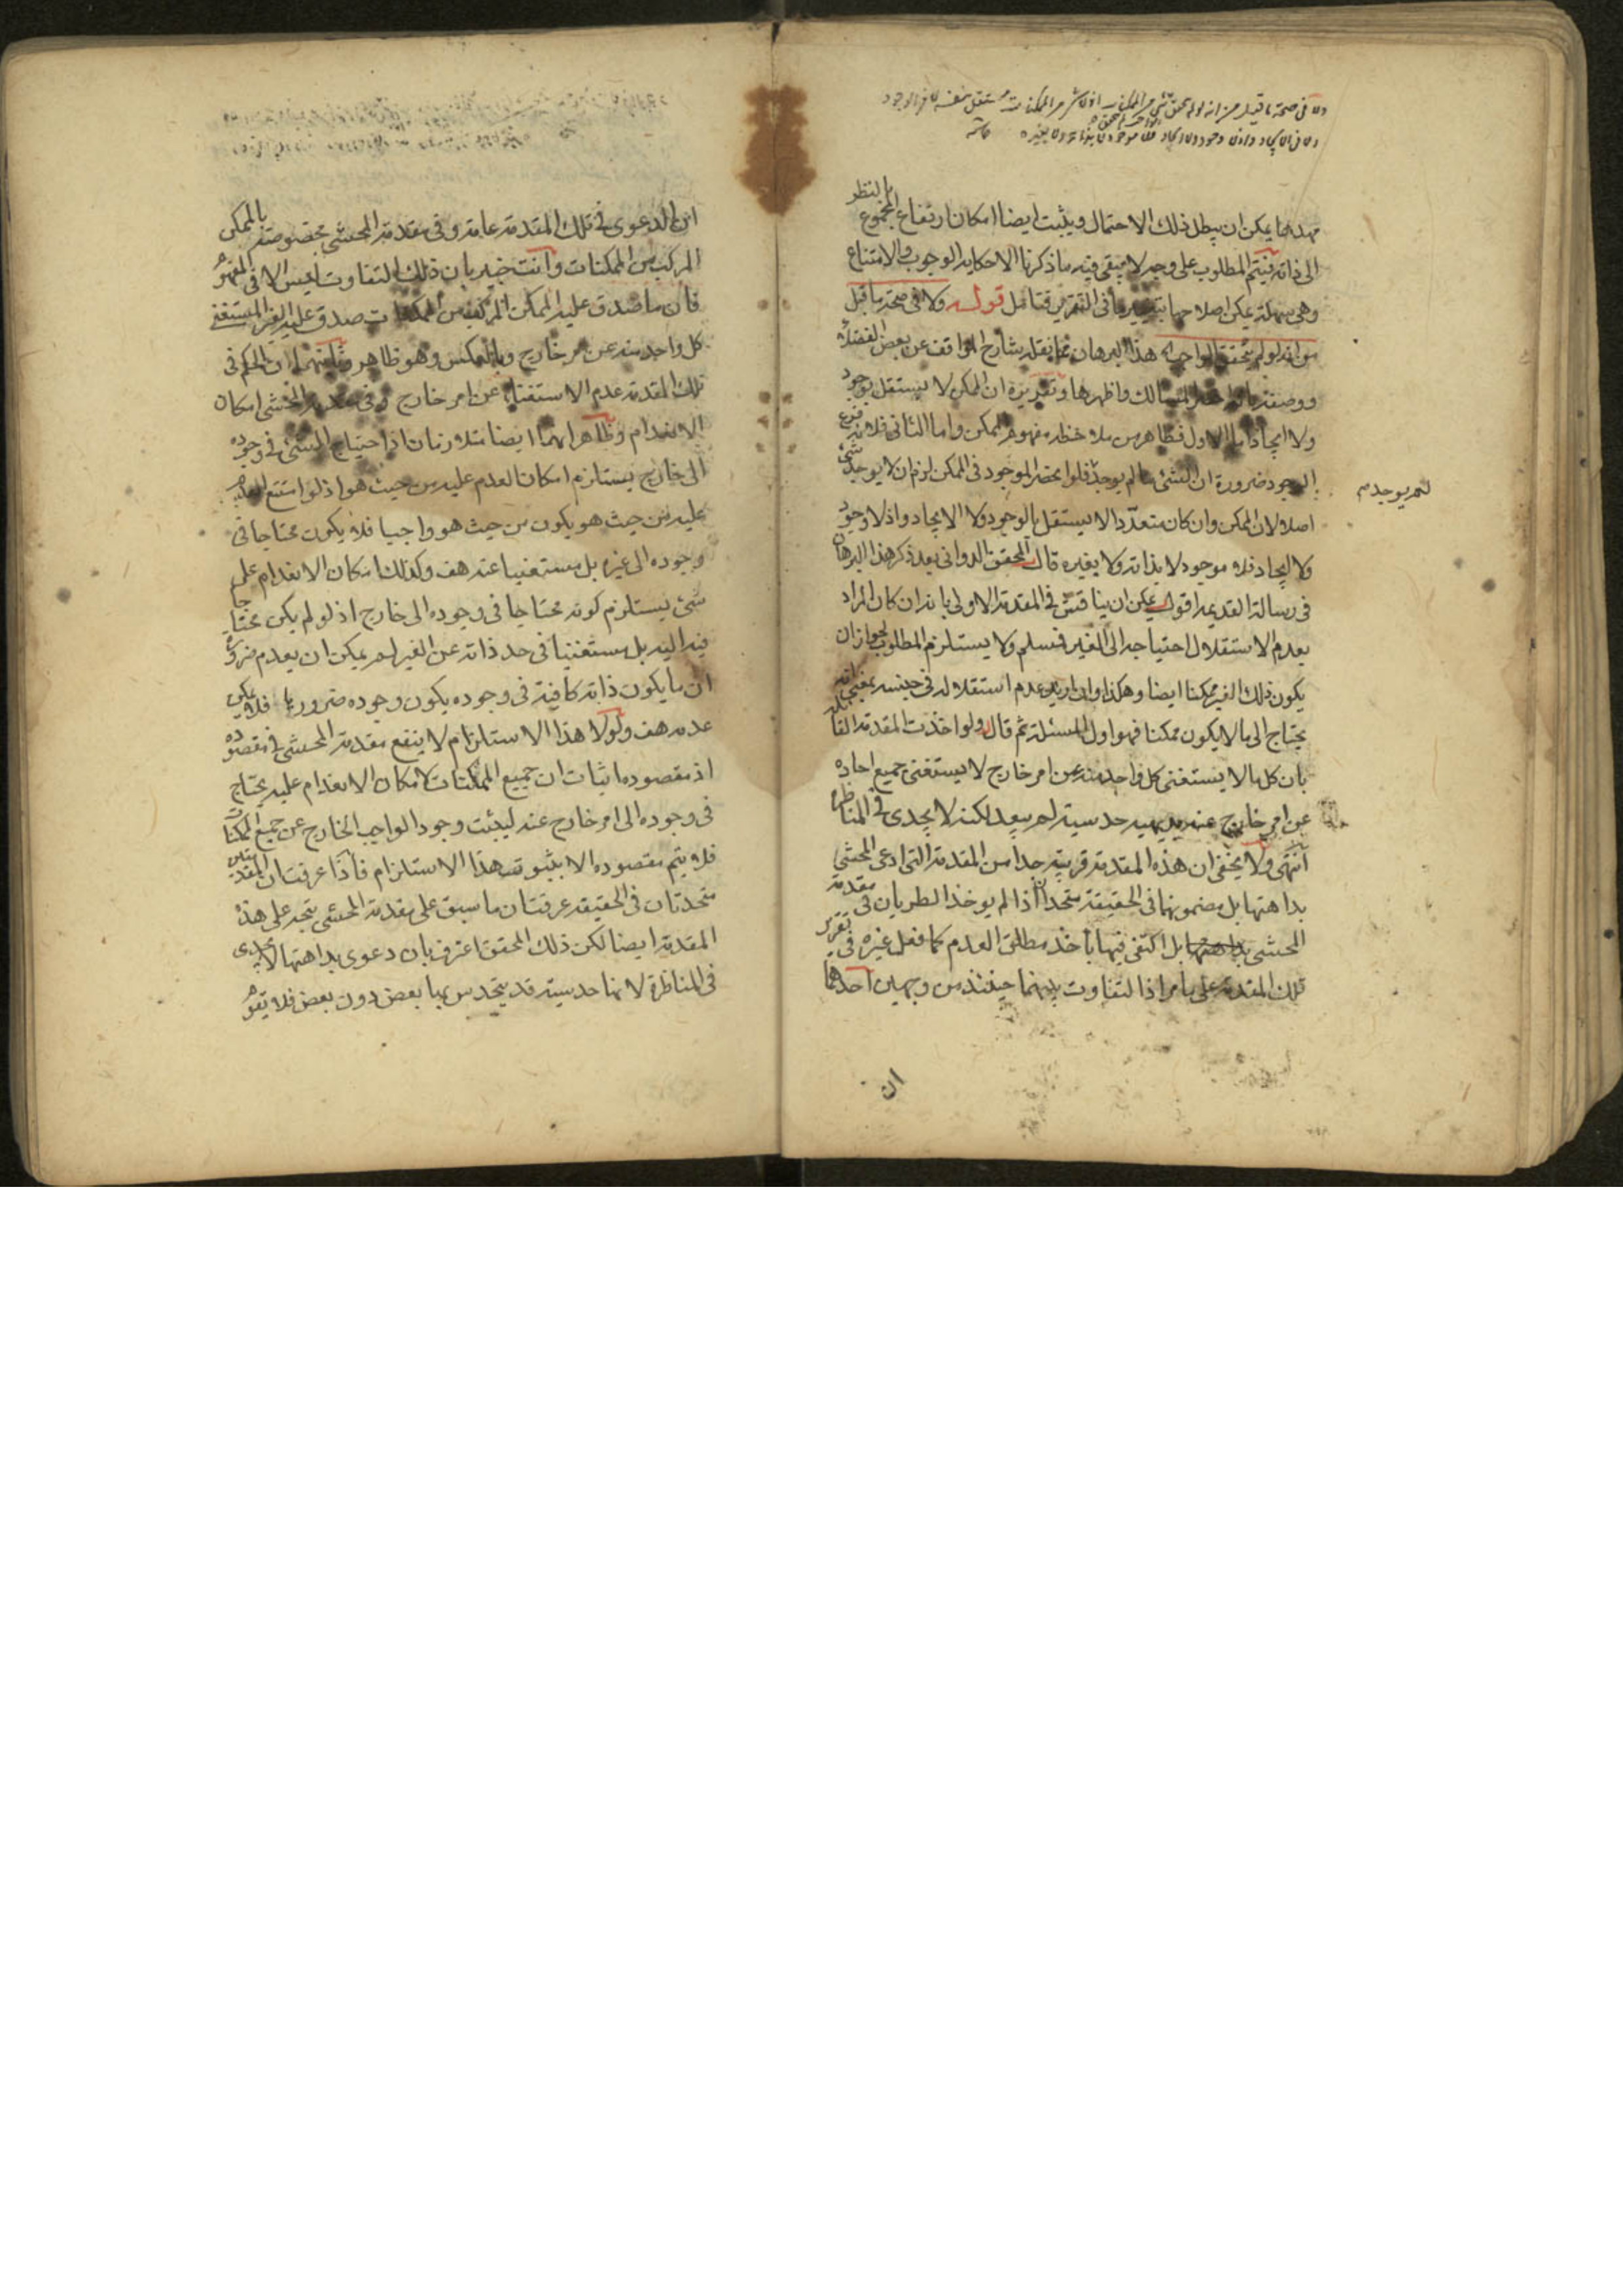 ولا فى صحة ما قيل من انه لو لم يتحقق
بالنظر
مهدها يمكن ان يبطل ذلك الاحتمال ويثبت ايضا امكان ارتفاع المجموع
الى ذاته فيتم المطلوب على وجه لا يبقى فيه ما ذكرنا الا حكاية الوجوب والامتناع
وهى سهلة يمكن اصلاحها فى التقرير فتامل قوله ولا فى صحة ما قيل
من انه لو لم يتحقق الواجب هذا البرهان مما نقله شارح المواقف عن بعض الفضلاء
ووصفه بانه اخصر المسالك واظهرها وتقريره ان الممكن لا يستقل بوجود
ولا ايجاد اما الاول فظاهر من ملاحظة مفهوم الممكن واما الثانى فلانه فرع
الوجود ضرورة ان الشئ ما لم يوجد فلو انحصر الموجود فى الممكن لزم ان لا يوجد شئ
لم يوجد
اصلا لان الممكن وان كان متعددا لا يستقل بالوجود ولا الايجاد واذ لا وجود
ولا ايجاد فلا موجود لا بذاته ولا بغيره قال المحقق الدوانى بعد ذكر هذا البرهان
فى رسالة القديمة اقول يمكن ان يناقش فى المقدمة الاولى بانه ان كان المراد
بعدم الاستقلال احتياجه الى الغير فمسلم ولا يستلزم المطلوب لجواز ان
يكون ذلك الغير ممكنا ايضا وهكذا وان اريد عدم استقلاله فى جنسه بمعنى انه
يحتاج الى ما لا يكون ممكنا فهو اول المسئلة ثم قال ولو اخذت المقدمة القائلة
بان كل ما لا يستغنى كل واحد منه عن امر خارج لا يستغنى جميع احاده
عن امر خارج عنه بديهية حدسية لم يبعد لكنه لا يجدى فى المناظرة
انتهى ولا يخفى ان هذه المقدمة قريبة جدا من المقدمة التى ادعى المحشى
بداهتها بل مضمونهما فى الحقيقة متحدان اذا لم يوخذ الطريان فى مقدمة
المحشى بل اكتفى فيها باخذ مطلق العدم كما فعل غيره فى تقرير
تلك المقدمة على ما مر اذ التفاوت بينهما حينئذ من وجهين احدهما
ان
ان الدعوى فى تلك المقدمة عامة وفى مقدمة المحشى مخصوصة بالممكن
المركب من الممكنات وانت خبير بان ذلك التفاوت ليس الا فى المفهوم
فان ما صدق عليه الممكن المركب من الممكنات صدق عليه الغير المستغنى
كل واحد منه عن امر خارج وبالعكس وهو ظاهر وثانيهما ان الحكم فى
تلك المقدمة عدم الاستغناء عن امر خارج وفى مقدمة المحشى امكان
الانعدام وظاهر انهما ايضا متلازمان اذ احتياج الشئ فى وجوده
الى خارج يستلزم امكان العدم عليه من حيث هو اذ لو امتنع العدم
عليه من حيث هو يكون من حيث هو واجبا فلا يكون محتاجا فى
وجوده الى غيره بل مستغنيا عنه هف وكذلك امكان الانعدام على
شئ يستلزم كونه محتاجا فى وجوده الى خارج اذ لو لم يكن محتاجا
فيه اليه بل مستغنيا فى حد ذاته عن الغير لم يمكن ان يعدم ضرورة
ان ما يكون ذاته كافية فى وجوده يكون وجوده ضروريا فلا يمكن
عدمه هف ولولا هذا الاستلزام لا ينفع مقدمة المحشى فى مقصوده
اذ مقصوده اثبات ان جميع الممكنات لامكان الانعدام عليه يحتاج
فى وجوده الى امر خارج عنه ليثبت وجود الواجب الخارج عن جميع الممكنات
فلا يتم مقصوده الا بثبوت هذا الاستلزام فاذا عرفت ان المقدمتين
متحدتان فى الحقيقة عرفت ان ما سبق على مقدمة المحشى يتجه على هذه
المقدمة ايضا لكن ذلك المحقق اعترف بان دعوى بداهتها لا يجدى
فى المناظرة لانها حدسية قد يتحدس بها بعض دون بعض فلا يقوم